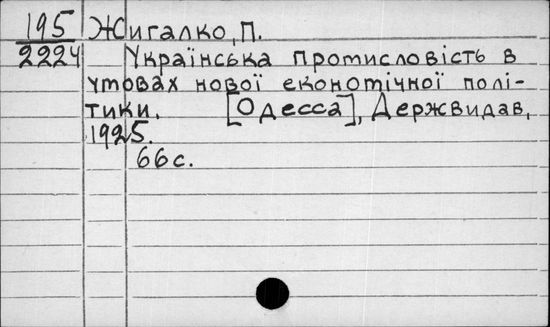 195 Жигалко, П.
2224 Українська промисловість в
умовах нової економічної полі-
тики. [Одесса], Держвидав,
1925.
66 с.